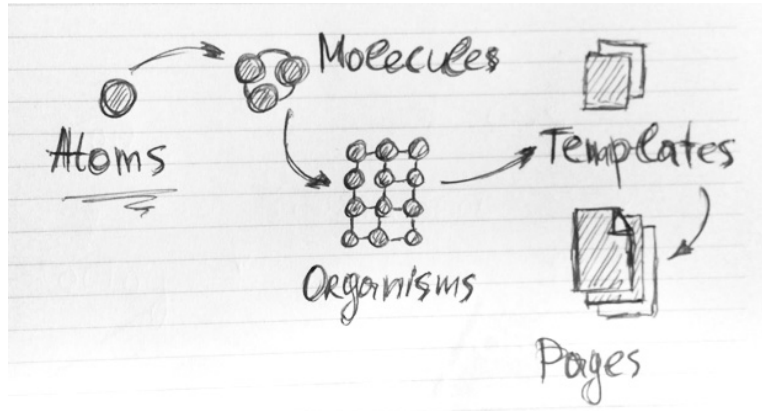 Atoms
Molecules
Organisms
Templates
Pages